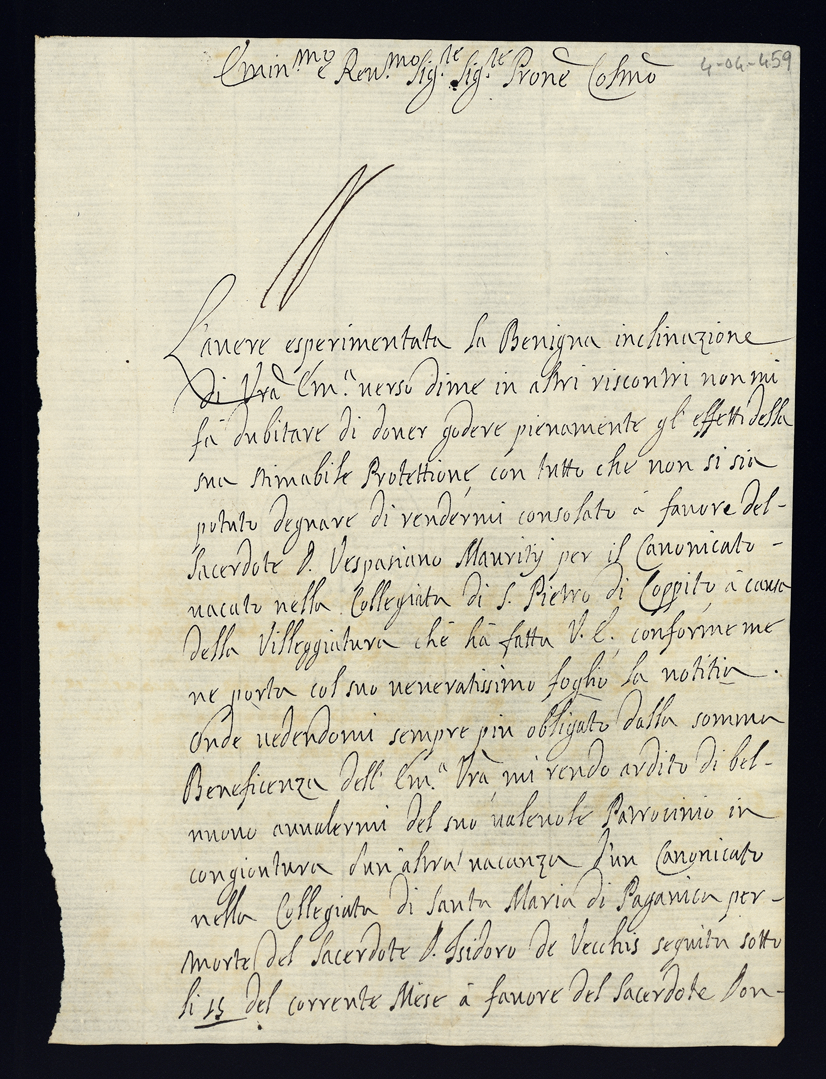 Emin.mo e Rev.mo Sig.re Sig.re Prone Colmo
4-04-459
L'avere esperimentata la Benigna inclinazione
di Vra Em.a verso dime in altri riscontri non mi
fà dubitare di dover godere pienamente gl'effetti della
sua stimabile Protettione, con tutto che non si sia
potuto degnare di rendermi consolato à favore del-
Sacerdote D. Vespasiano Mauritij per il Canonicato -
vacato nella Collegiata di S. Pietro di Coppito à causa
della Villeggiatura che hà fatta V. E., conforme me
ne porta col suo veneratissimo foglio la notitia.
Onde vedendomi sempre piu obligato dalla somma
Beneficenza dell' Em.a Vra, mi rendo ardito di bel-
nuovo avvalermi del suo valevole Patrocinio in
congiontura d'un'altra vacanza d'un Canonicato
nella Collegiata di Santa Maria di Paganica per-
morte del Sacerdote D. Isidoro de Vecchis seguita sotto
li 15 del corrente Mese à favore del Sacerdote Don-